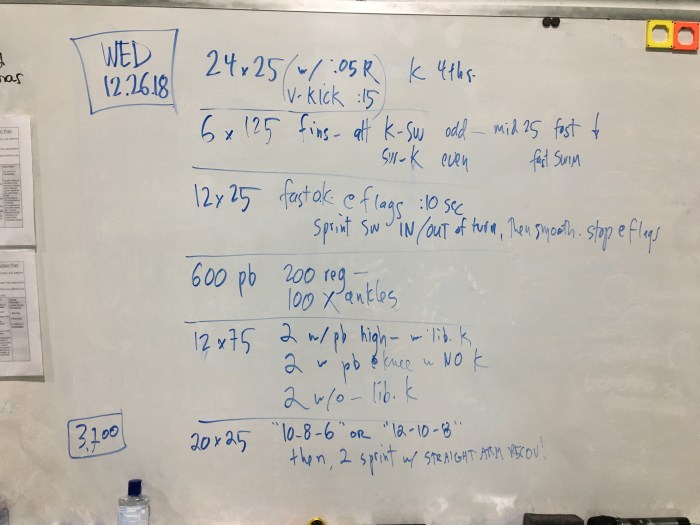 WED
12.26.18
24x25 (w/ :05R K 4ths.
v-kick :15)
6 x 125 fins - alt K-SW odd - mid 25 fast ↓
SW-K even fast swim
12x25 fast o.k. @ flags :10 sec
sprint SW IN/OUT of turn, then smooth. stop @ flags
600 pb 200 reg -
100 X ankles
12x75 2 w/pb high - w lib. K
2 w pb @ knee w NO K
2 w/o - lib. K
3,700
20x25 "10-8-6" OR "12-10-8"
then, 2 sprint w/ STRAIGHT ARM RECOV!